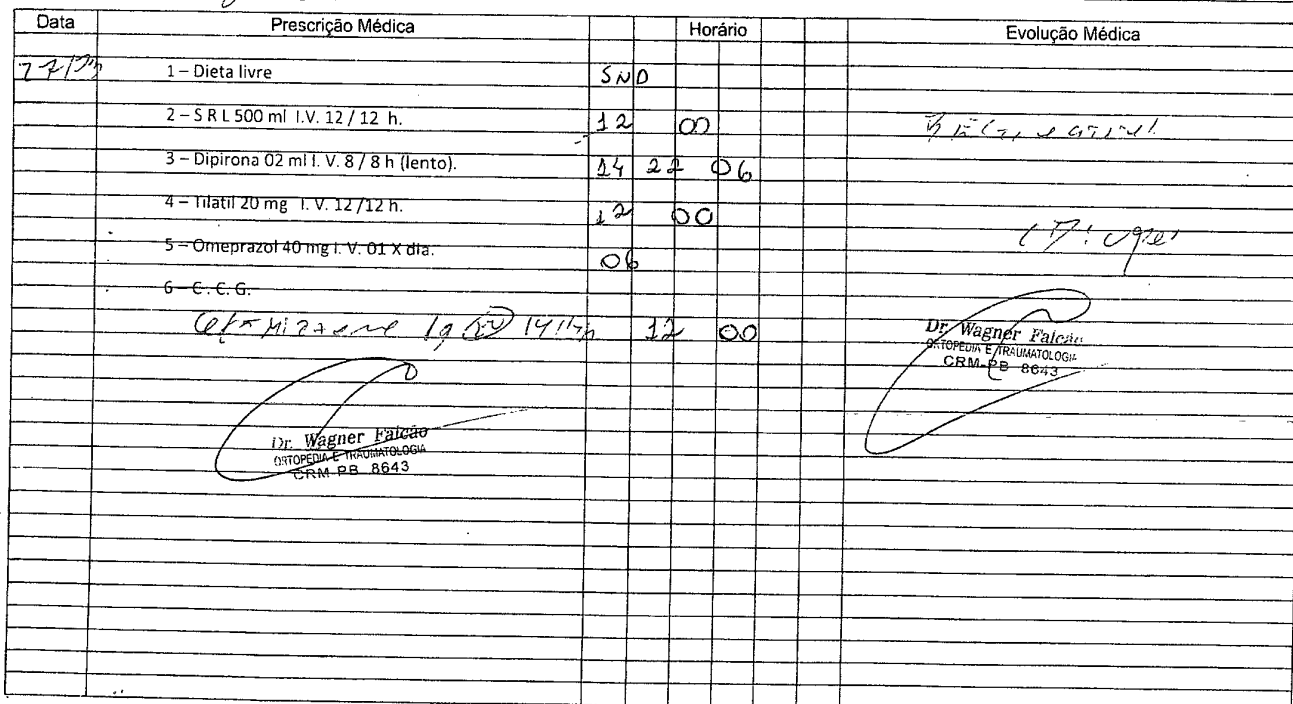 Data Prescrição Médica Horário Evolução Médica
1 – Dieta livre SND
2 – S R L 500 ml I.V. 12 / 12 h. 12 00
3 – Dipirona 02 ml I. V. 8 / 8 h (lento). 14 22 06
4 – Tilatil 20 mg I. V. 12 /12 h. 12 00
5 – Omeprazol 40 mg I. V. 01 X dia. 06
6 – C. C. G.
12 00
Dr. Wagner Falcão
ORTOPEDIA E TRAUMATOLOGIA
CRM-PB 8643
Dr. Wagner Falcão
ORTOPEDIA E TRAUMATOLOGIA
CRM-PB 8643